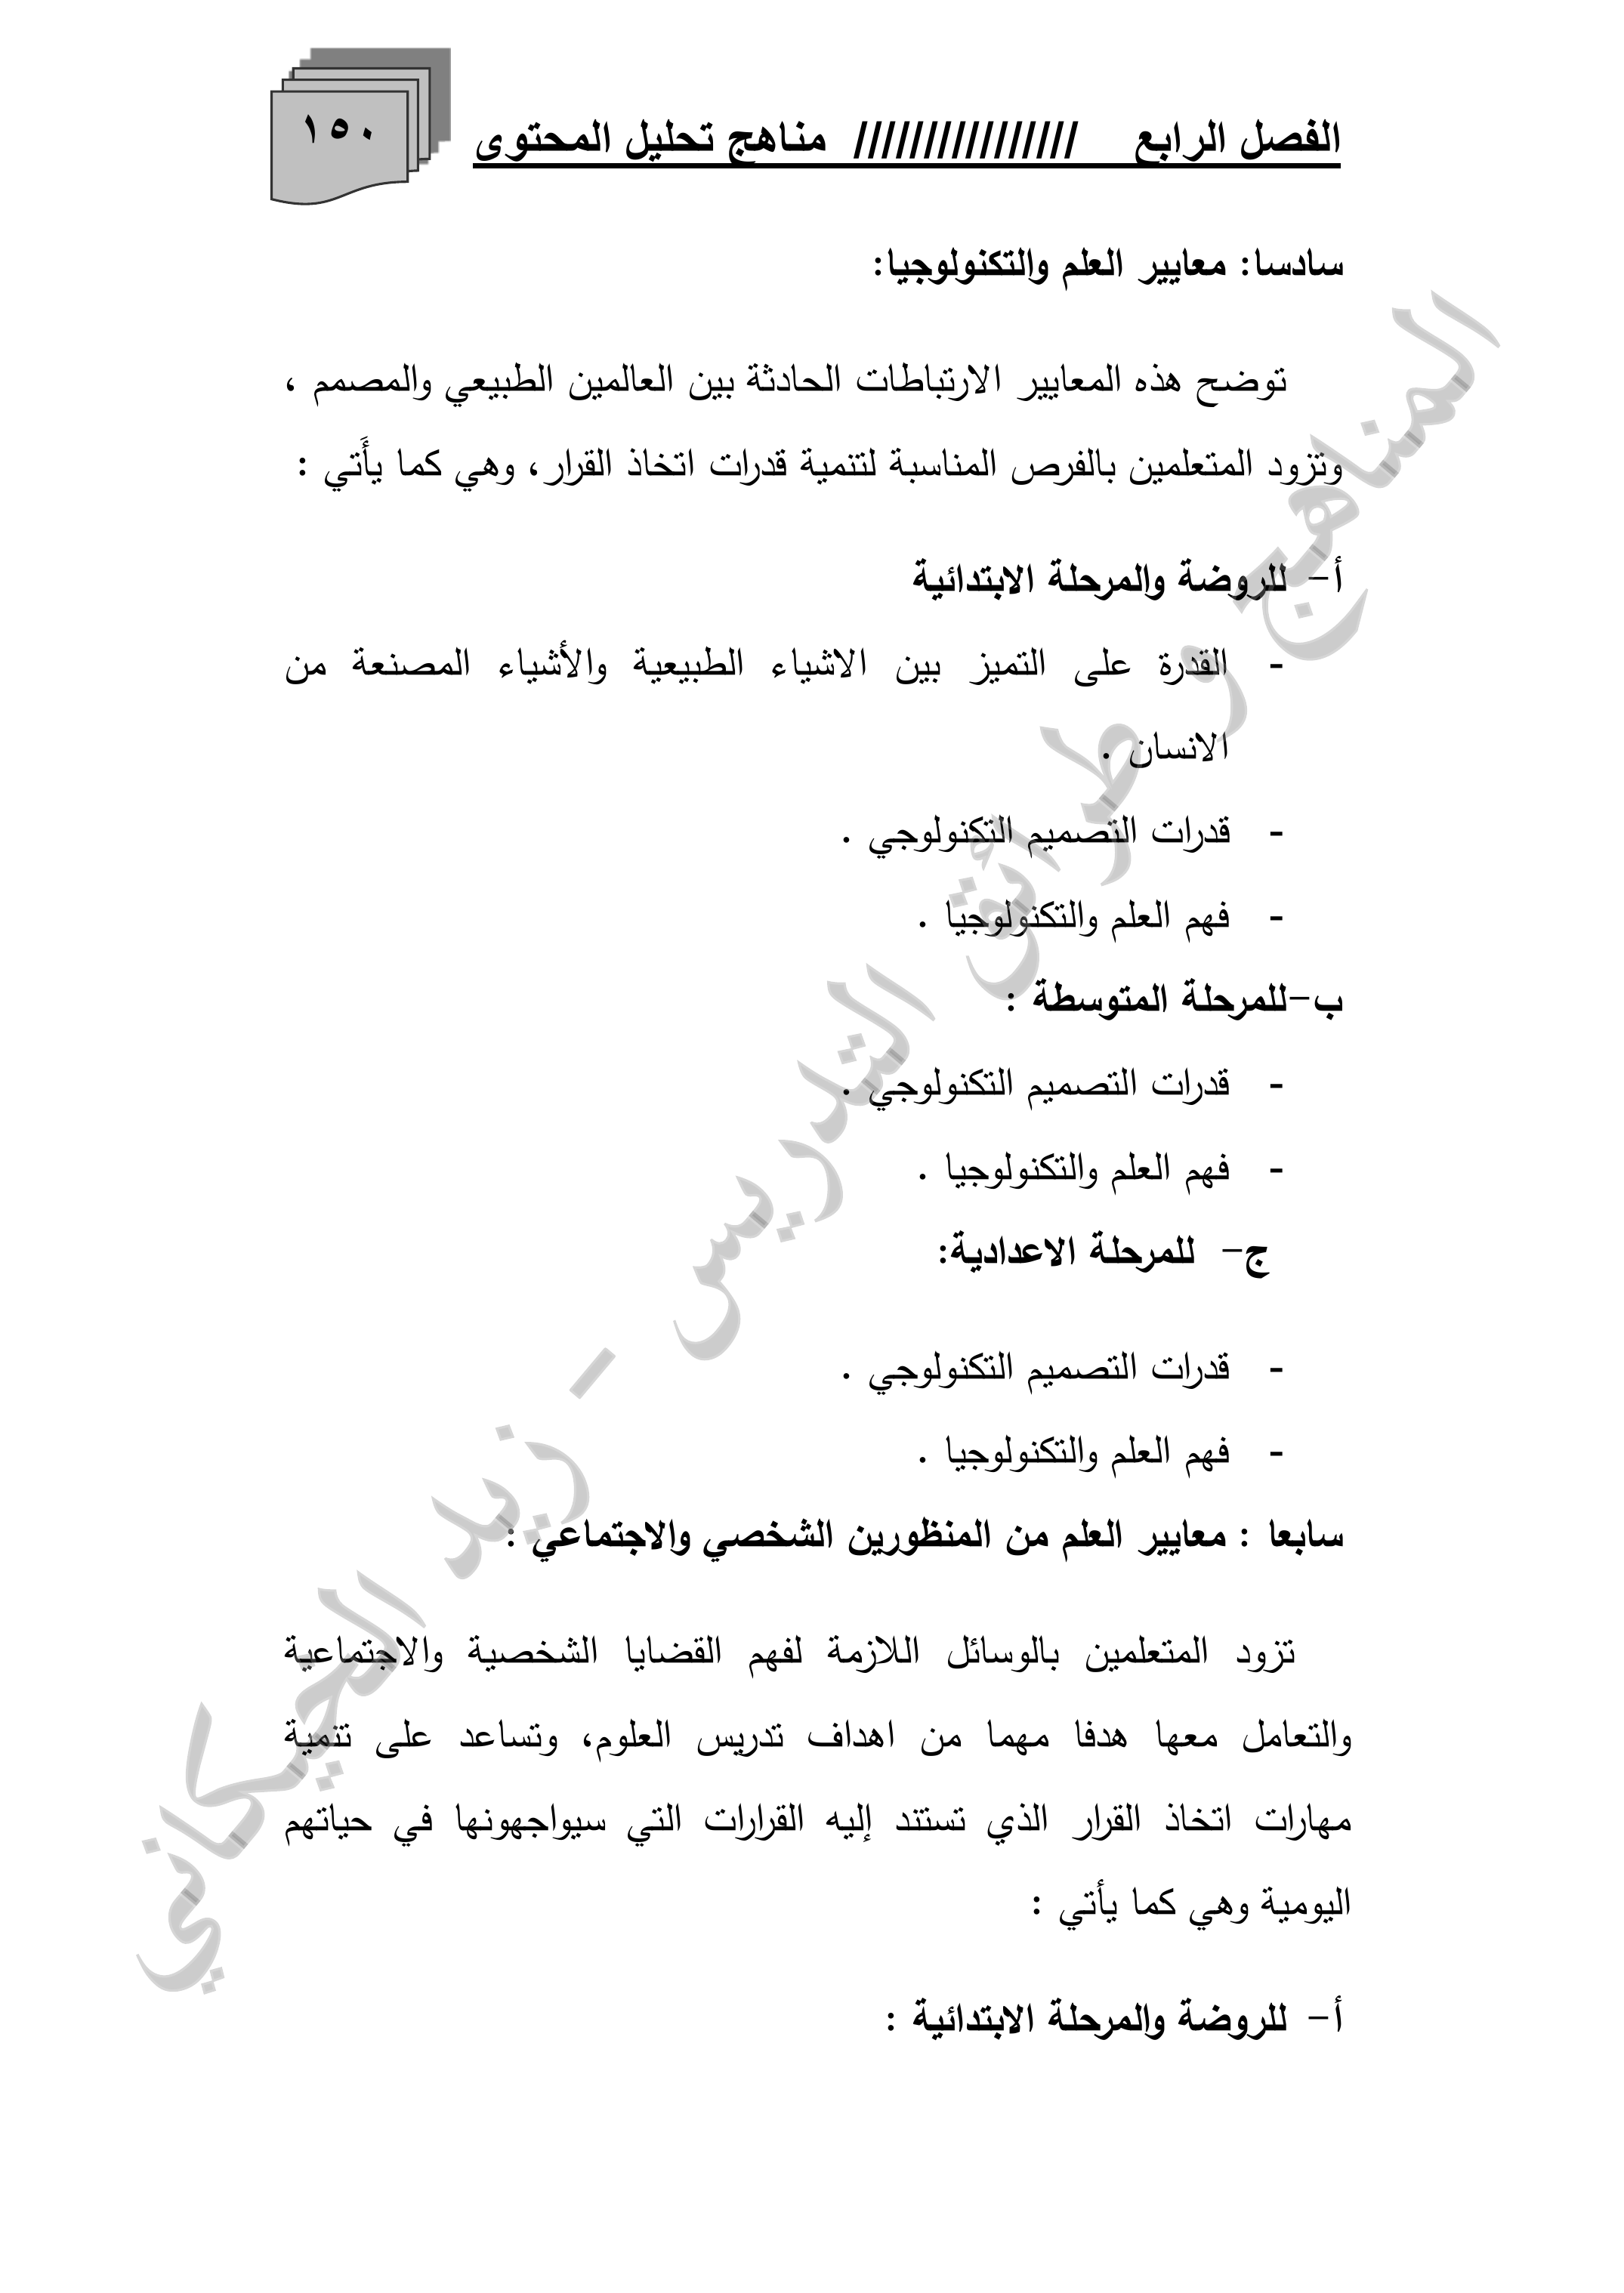 الفصل الرابع //////////////// مناهج تحليل المحتوى
١٥٠
سادسا: معايير العلم والتكنولوجيا:
توضح هذه المعايير الارتباطات الحادثة بين العالمين الطبيعي والمصمم ،
وتزود المتعلمين بالفرص المناسبة لتنمية قدرات اتخاذ القرار، وهي كما يأَتي :
أ- للروضة والمرحلة الابتدائية
- القدرة على التميز بين الاشياء الطبيعية والأشياء المصنعة من
الانسان .
- قدرات التصميم التكنولوجي .
- فهم العلم والتكنولوجيا .
ب-للمرحلة المتوسطة :
- قدرات التصميم التكنولوجي .
- فهم العلم والتكنولوجيا .
ج- للمرحلة الاعدادية:
- قدرات التصميم التكنولوجي .
- فهم العلم والتكنولوجيا .
سابعا : معايير العلم من المنظورين الشخصي والاجتماعي :
تزود المتعلمين بالوسائل اللازمة لفهم القضايا الشخصية والاجتماعية
والتعامل معها هدفا مهما من اهداف تدريس العلوم، وتساعد على تنمية
مهارات اتخاذ القرار الذي تستند إليه القرارات التي سيواجهونها في حياتهم
اليومية وهي كما يأتي :
أ- للروضة والمرحلة الابتدائية :
المناهج و طرائق التدريس - زيد الحيكاني